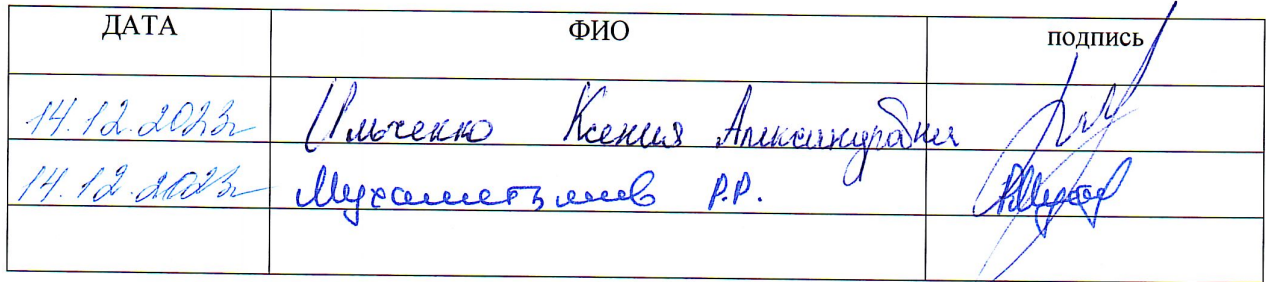 ДАТА ФИО подпись
14.12.2023г Ильченко Ксения Александровна
14.12.2023г Мухаметьянов Р.Р.